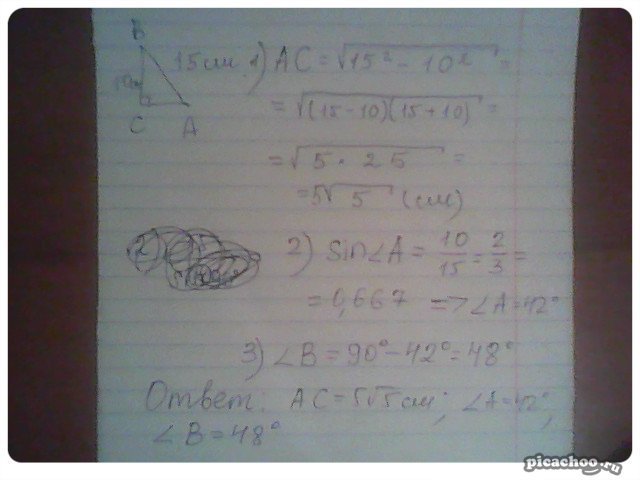 B
15 см 1) AC = √15² - 10² =
10см
C A
= √(15-10)(15+10) =
= √5 · 25 =
= 5√5 (см)
2) sin∠A = 10/15 = 2/3 =
= 0,667 => ∠A=42°
3) ∠B = 90° - 42° = 48°
Ответ. AC = 5√5 см; ∠A=42°,
∠B = 48°
picachoo.ru